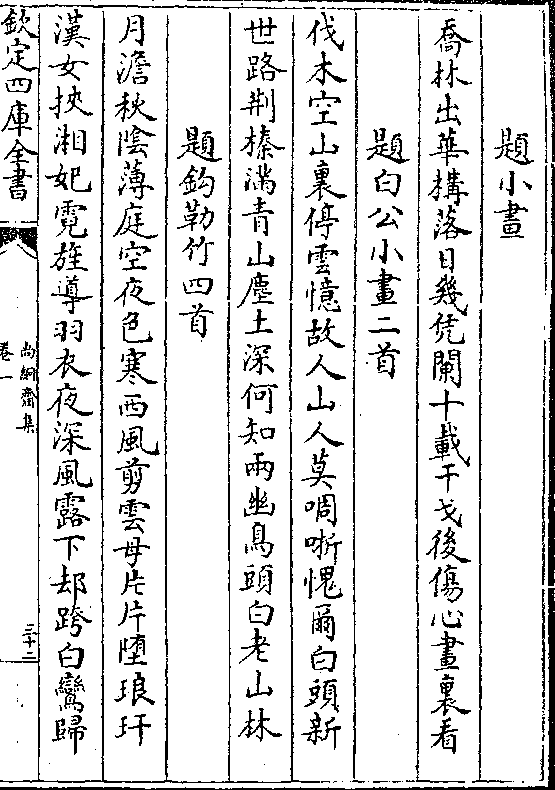 題小畫
喬林出華構落日幾凭闌十載干戈後傷心畫裏看
題白公小畫二首
伐木空山裏停雲憶故人山人莫啁哳愧爾白頭新
世路荆榛滿青山塵土深何知兩幽鳥頭白老山林
題鈎勒竹四首
月澹秋陰薄庭空夜色寒西風剪雲母片片墮琅玕
漢女挾湘妃霓旌導羽衣夜深風露下却跨白鸞歸
欽定四庫全書
尚絅齋集
卷一
三十二